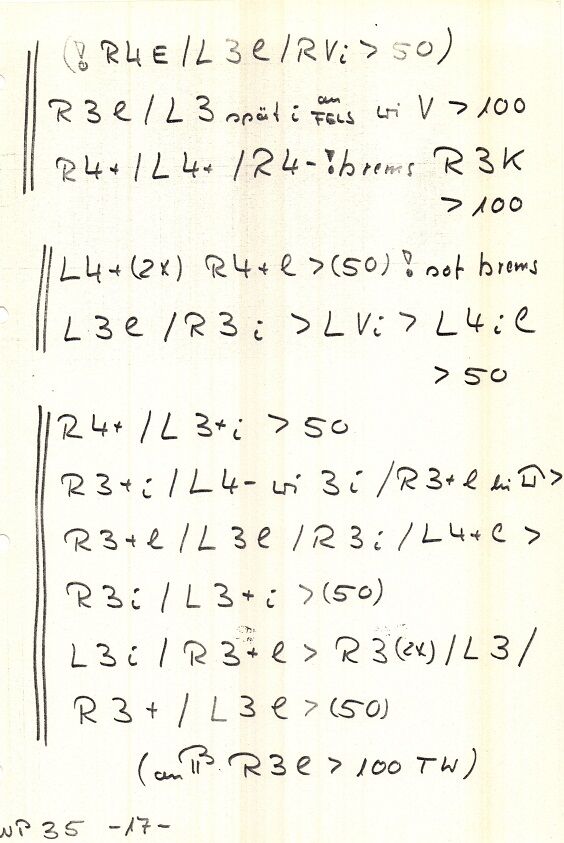 (! R4E/L3e/RVi > 50)
R3e/L3 spät i an FELS wi V > 100
R4+/L4+/R4- ! brems R3K
> 100
L4+(2x) R4+e > (50) ! not brems
L3e/R3i > LVi > L4ie
> 50
R4+/L3+i > 50
R3+i/L4- wi 3i/R3+e bei >
R3+e/L3e/R3i/L4+e >
R3i/L3+i > (50)
L3i/R3+e > R3(2x)/L3/
R3+/L3e > (50)
(an R3e > 100 TW)
WP 35 -17-